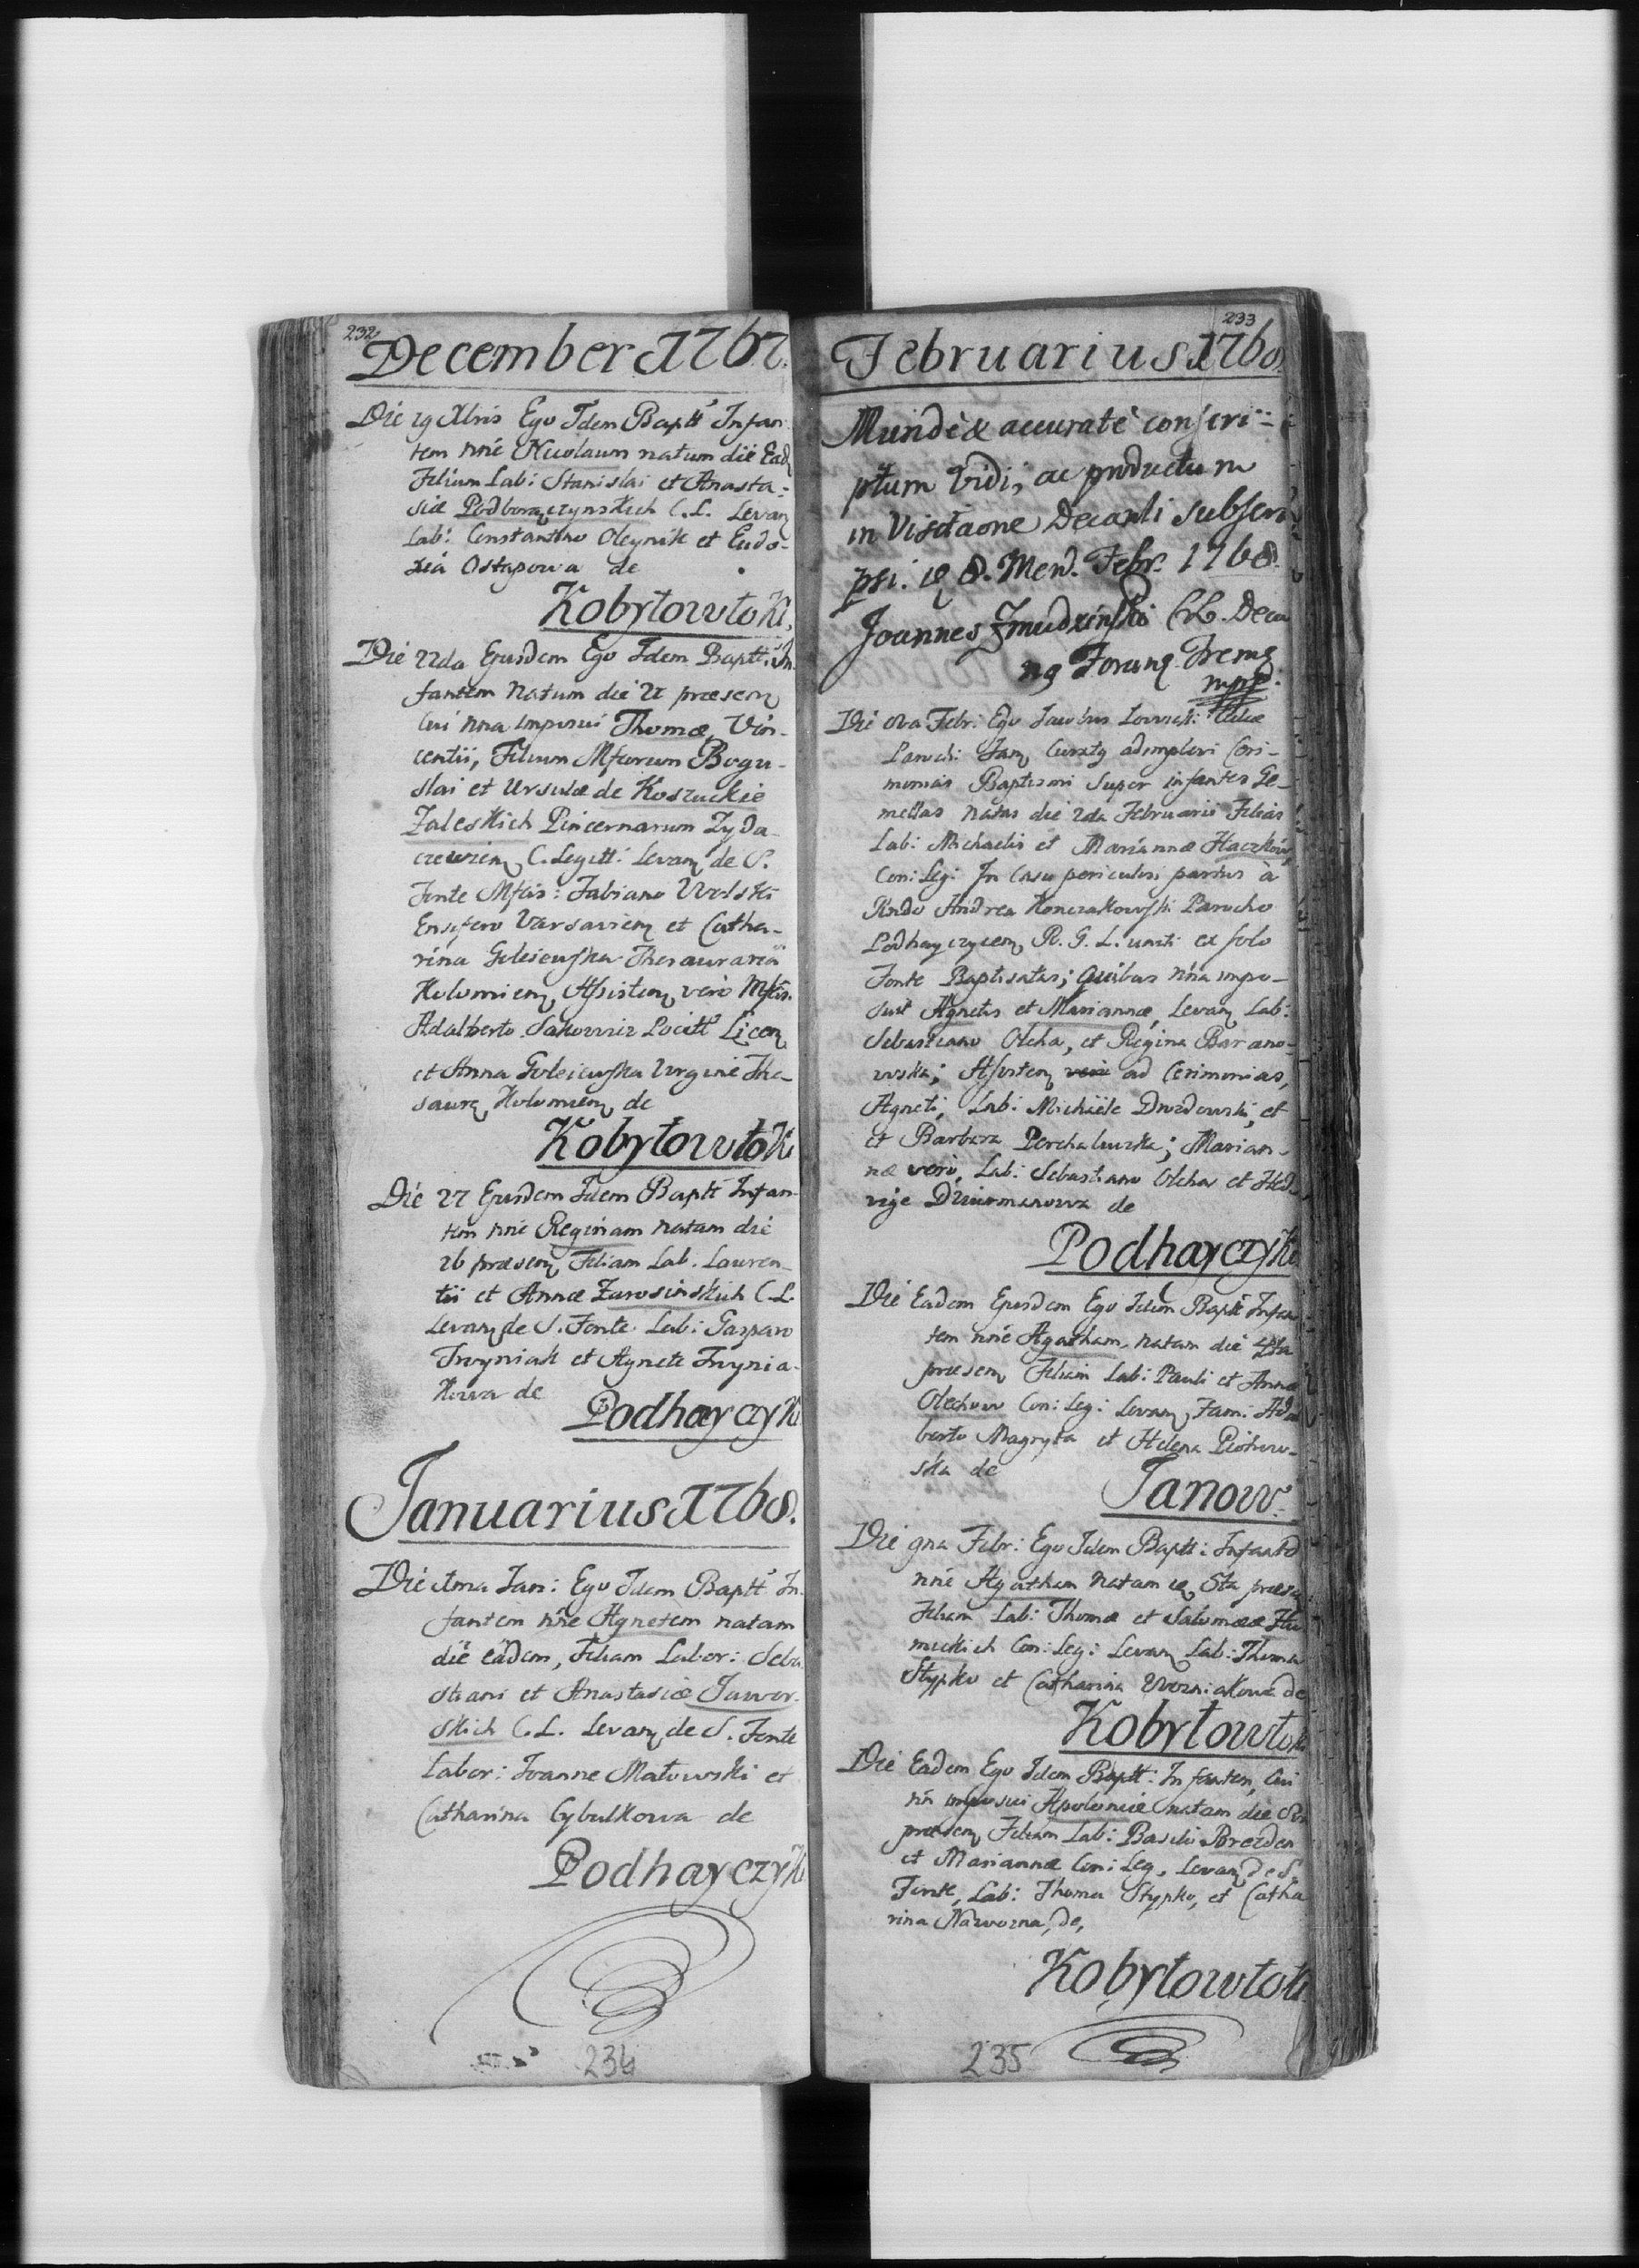 232
December 1767.
Die 19 Xbris Ego Idem Baptt Infan
tem nñe Nicolaum natum die Ead
Filium Lab: Stanislai et Anasta:
siæ Podborączynskich C. L. Levan
Lab: Constantino Oleynik et Eudo-
xia Ostapowa de
Kobyłowłoki.
Die 22da Ejusdem Ego Idem Baptt. In
fantem Natum die 21 præsen
Cui nna imposui Thomæ, Vin-
centii, Filium Mfcorum Bogu-
slai et Ursulæ de Koszuckie
Zaleskich Pincernarum Zyda-
czewien C. Legitt: Levan de S.
Fonte Mfcis: Fabiano Wolski
Ensifero Varsavien et Catha-
rina Goleiewska Thesauraria
Holomien, Assisten vero Mfcis.
Adalberto Sakowicz Locitt Licen
et Anna Goleiewska Virgine The-
saura Holomien de
Kobyłowłoki
Die 27 Ejusdem Idem Baptt Infan-
tem nñe Reginam natam die
26 præsen Filiam Lab. Lauren-
tii et Annæ Zarosinskich C. L.
Levan de S. Fonte Lab: Gasparo
Trwyniak et Agnete Trwynia-
kowa de
Podhayczyki
Januarius 1768.
Die 1ma Jan: Ego Idem Baptt In
fantem nñe Agnetem natam
die eadem, Filiam Labor: Seba
stiani et Anastasiæ Jawor-
skich C. L. Levan de S. Fonte
Labor: Joanne Małowski et
Catharina Cybulkowa de
Podhayczyki
234
233
Februarius 1768
Mundè & accuratè conscri-
ptum Vidi, ac productum
in Visitaõne Decanli subscri
psi. 8. Mens. Febr. 1768.
Joannes Zmudzinski Deca
nq Foranq Tremq
mpp.
Die 8va Febr: Ego Jacobus
Paroch: Jan adimplevi Ceri-
monias Baptismi Super infantes Ge-
mellas natas die 2da Februarii Filias
Lab: Michaelis et Mariannæ Haczków
Con: Leg: In Casu periculosi partus à
Rndo Andrea Konczakowski Parocho
Podhayczycen R. G. L. uniti ex solo
Fonte Baptisatas; Quibus nña impo-
suit Agnetis et Mariannæ, Levan Lab:
Sebastiano Olcha, et Regina Barano-
wska; Assisten vero ad Cerimonias,
Agneti, Lab: Michäele Drozdowski, et
et Barbara Perchaluzka; Marian-
næ vero, Lab: Sebastiano Olcha et Hed
vige de
Podhayczyki
Die Eadem Ejusdem Ego Idem Baptt Infan
tem nñe Agatham, natam die 4ta
præsen Filiam Lab: Pauli et Annæ
Olechow Con: Leg: Levan Fam: Adal
berto Magryta et Helena Piotrow-
ska de
Janow.
Die 9na Febr: Ego Idem Baptt: Infantem
nñe Agatham natam 5ta præsen
Filiam Lab: Thomæ et Salomeæ Hu
mickich Con: Leg: Levan Lab: Thoma
Stypko et Catharina Wozniakowa de
Kobyłowłoki
Die Eadem Ego Idem Baptt: Infantem, Cui
nñ imposui Apoloniæ natam die
præsen Filiam Lab: Basilii Brezden
et Mariannæ Con: Leg. Levan de S.
Fonte, Lab: Thoma Stypko, et Catha
rina Nawozna, de,
Kobyłowłoki
235